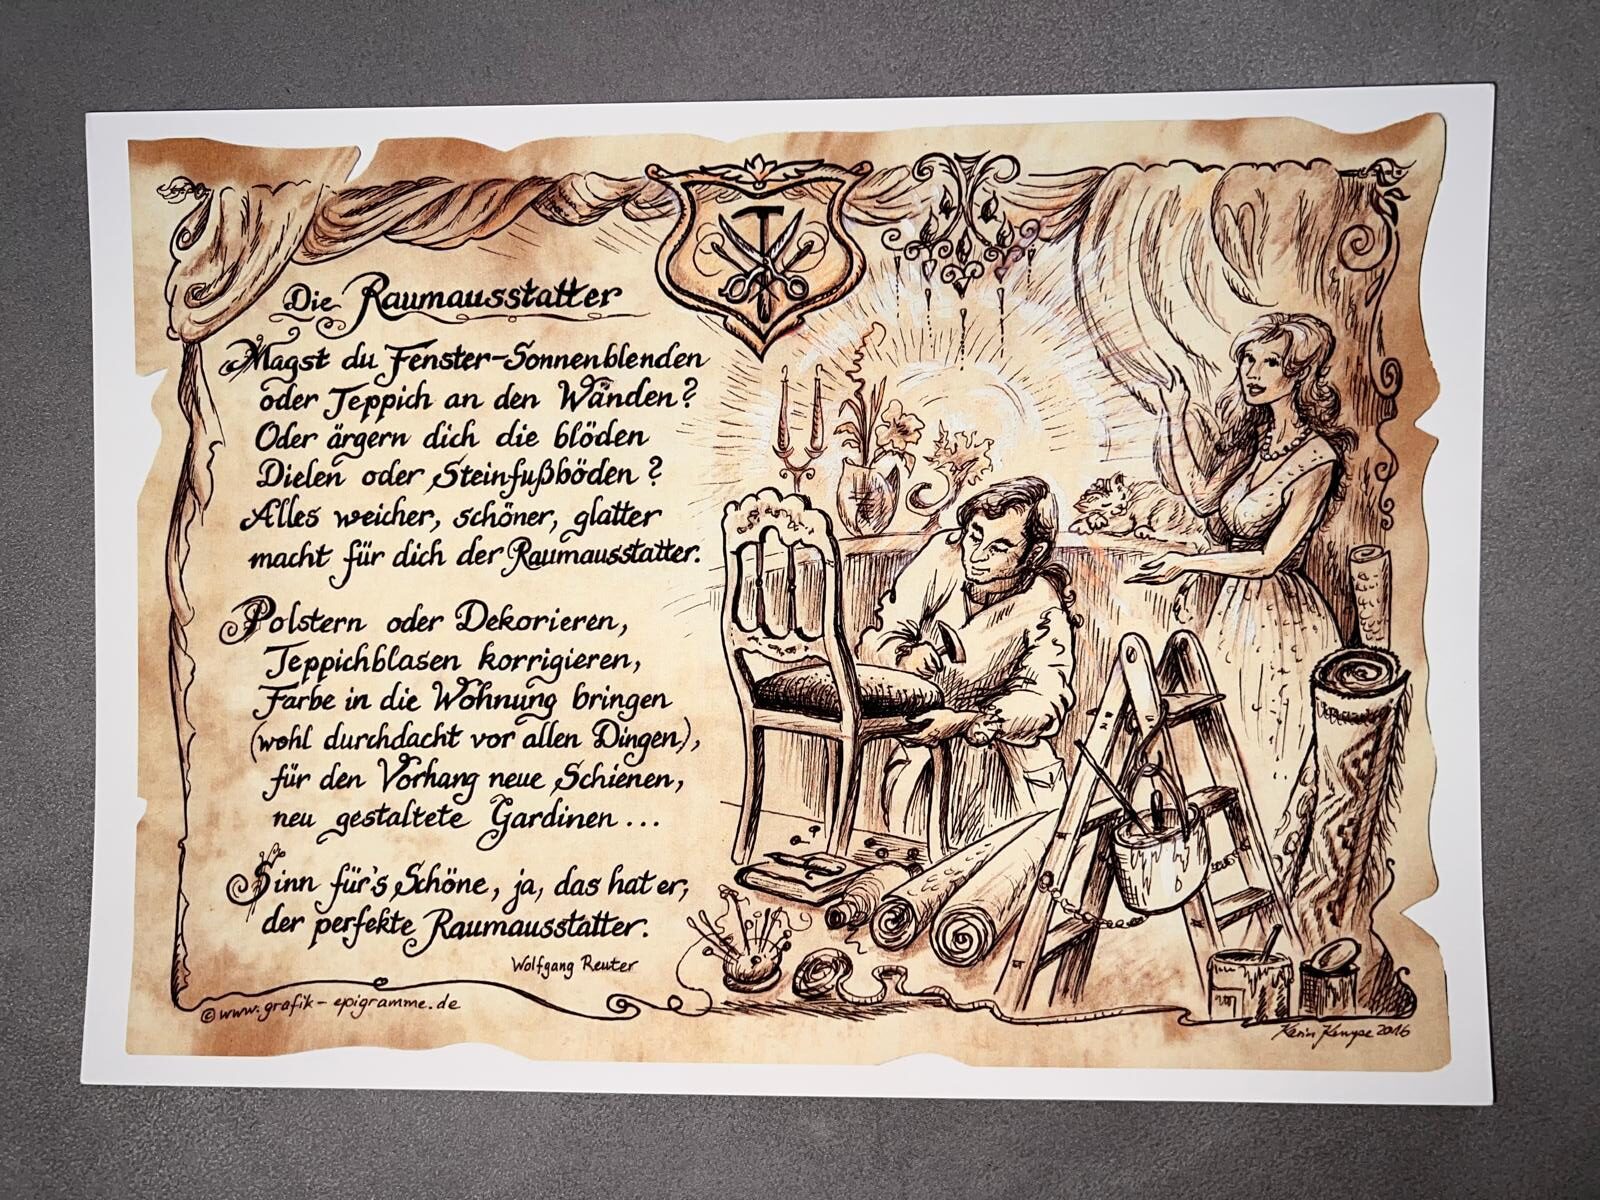 Die Raumausstatter
Magst du Fenster-Sonnenblenden
oder Teppich an den Wänden?
Oder ärgern dich die blöden
Dielen oder Steinfußböden?
Alles weicher, schöner, glatter
macht für dich der Raumausstatter.
Polstern oder Dekorieren,
Teppichblasen korrigieren,
Farbe in die Wohnung bringen
(wohl durchdacht vor allen Dingen),
für den Vorhang neue Schienen,
neu gestaltete Gardinen...
Sinn für's Schöne, ja, das hat er,
der perfekte Raumausstatter.
Wolfgang Reuter
©www.grafik-epigramme.de
Karin Kempe 2016